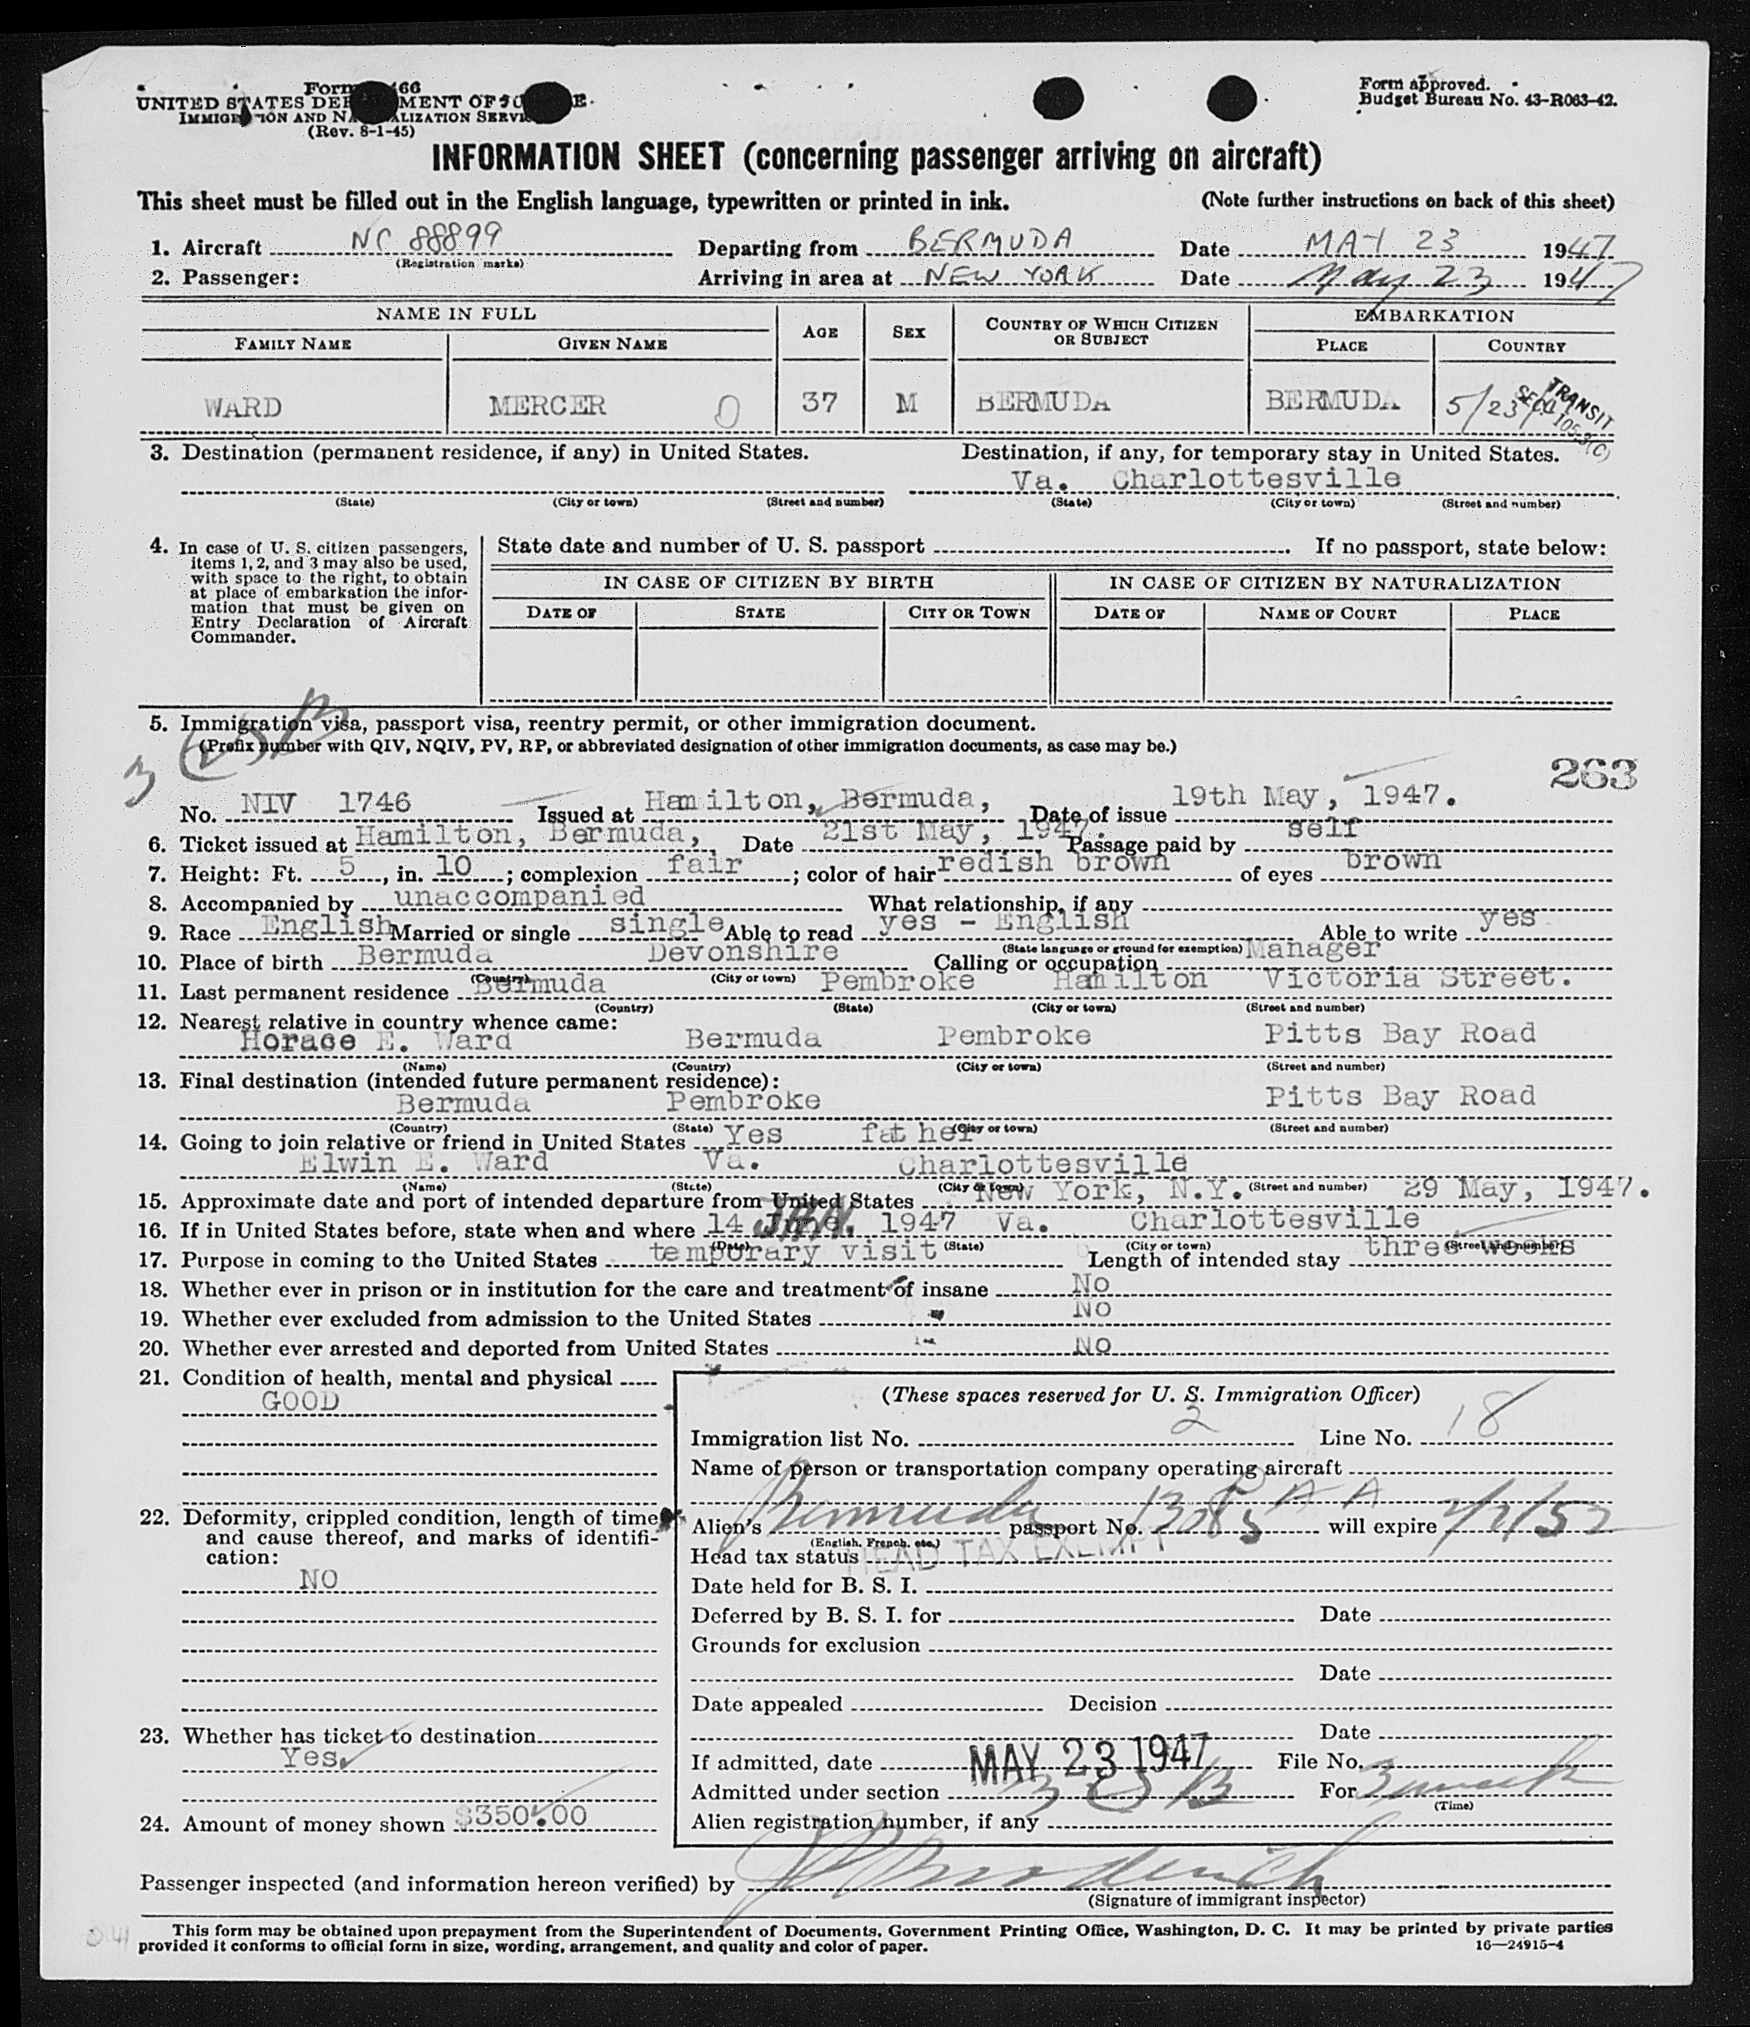 Form 466
UNITED STATES DEPARTMENT OF JUSTICE
IMMIGRATION AND NATURALIZATION SERVICE
(Rev. 8-1-45)
Form approved.
Budget Bureau No. 43-R063-42.
INFORMATION SHEET (concerning passenger arriving on aircraft)
This sheet must be filled out in the English language, typewritten or printed in ink. (Note further instructions on back of this sheet)
1. Aircraft NC 88899 Departing from BERMUDA Date MAY 23 1947
(Registration marks)
2. Passenger: Arriving in area at NEW YORK Date May 23 1947
NAME IN FULL AGE SEX COUNTRY OF WHICH CITIZEN OR SUBJECT EMBARKATION
FAMILY NAME GIVEN NAME PLACE COUNTRY
WARD MERCER 0 37 M BERMUDA BERMUDA 5/23/47 TRANSIT SEC.
3. Destination (permanent residence, if any) in United States. Destination, if any, for temporary stay in United States.
Va. Charlottesville
(State) (City or town) (Street and number) (State) (City or town) (Street and number)
4. In case of U. S. citizen passengers, items 1, 2, and 3 may also be used, with space to the right, to obtain at place of embarkation the information that must be given on Entry Declaration of Aircraft Commander.
State date and number of U. S. passport If no passport, state below:
IN CASE OF CITIZEN BY BIRTH IN CASE OF CITIZEN BY NATURALIZATION
DATE OF STATE CITY OR TOWN DATE OF NAME OF COURT PLACE
5. Immigration visa, passport visa, reentry permit, or other immigration document.
(Prefix number with QIV, NQIV, PV, RP, or abbreviated designation of other immigration documents, as case may be.)
3
263
No. NIV 1746 Issued at Hamilton, Bermuda, Date of issue 19th May, 1947.
6. Ticket issued at Hamilton, Bermuda, Date 21st May, 1947. Passage paid by self
7. Height: Ft. 5, in. 10; complexion fair; color of hair redish brown of eyes brown
8. Accompanied by unaccompanied What relationship, if any
9. Race English Married or single single Able to read yes - English Able to write yes
(State language or ground for exemption)
10. Place of birth Bermuda Devonshire Calling or occupation Manager
(Country) (City or town)
11. Last permanent residence Bermuda Pembroke Hamilton Victoria Street.
(Country) (State) (City or town) (Street and number)
12. Nearest relative in country whence came:
Horace E. Ward Bermuda Pembroke Pitts Bay Road
(Name) (Country) (City or town) (Street and number)
13. Final destination (intended future permanent residence):
Bermuda Pembroke Pitts Bay Road
(Country) (State) (City or town) (Street and number)
14. Going to join relative or friend in United States Yes father
Elwin E. Ward Va. Charlottesville
(Name) (State) (City or town) (Street and number)
15. Approximate date and port of intended departure from United States New York, N.Y. 29 May, 1947.
16. If in United States before, state when and where 14 JAN. 1947 Va. Charlottesville
(Date) (State) (City or town) (Street and number)
17. Purpose in coming to the United States temporary visit Length of intended stay three weeks
18. Whether ever in prison or in institution for the care and treatment of insane No
19. Whether ever excluded from admission to the United States NO
20. Whether ever arrested and deported from United States NO
21. Condition of health, mental and physical
GOOD
22. Deformity, crippled condition, length of time and cause thereof, and marks of identification:
NO
23. Whether has ticket to destination
Yes.
24. Amount of money shown $350.00
(These spaces reserved for U. S. Immigration Officer)
Immigration list No. 2 Line No. 18
Name of person or transportation company operating aircraft
P A A
Alien's Bermuda passport No. 13085 will expire 2/2/52
(English, French, etc.)
Head tax status HEAD TAX EXEMPT
Date held for B. S. I.
Deferred by B. S. I. for Date
Grounds for exclusion
Date
Date appealed Decision
Date
If admitted, date MAY 23 1947 File No.
Admitted under section 3 (2) B For 3 weeks
(Time)
Alien registration number, if any
Passenger inspected (and information hereon verified) by
(Signature of immigrant inspector)
This form may be obtained upon prepayment from the Superintendent of Documents, Government Printing Office, Washington, D. C. It may be printed by private parties
provided it conforms to official form in size, wording, arrangement, and quality and color of paper. 16—24915-4